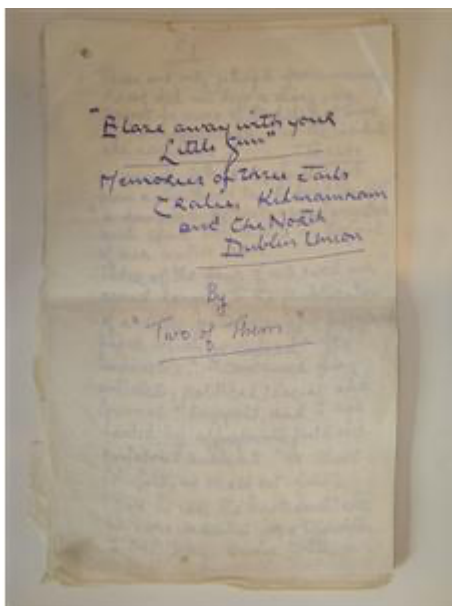 "Blaze away with your
Little Gun"
Memories of three Jails
Tralee, Kilmainham
and the North
Dublin Union
By
"Two of Them"